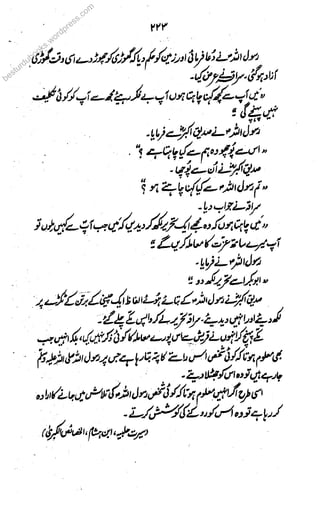 ۲۲۳
رسول اللہؐ نے دعا فرمائی اور زمین کو حکم دیا کہ گھوڑی کو چھوڑ دے اسی وقت گھوڑی
آزاد ہو گئی، سراقہ نے عرض کیا۔
"میں آپ سے کچھ کہنا چاہتا ہوں آپ بے فکر رہیئے مجھ سے آپ کو کوئی تکلیف
نہیں پہنچے گی"
رسول اللہؐ نے صدیق اکبرؓ سے فرمایا۔
"اس سے پوچھو وہ ہم سے کیا چاہتا ہے؟"
صدیق اکبرؓ نے اُن سے پُوچھا۔
"تم رسول اللہؐ سے کیا کہنا چاہتے ہو؟"
سراقہ نے جواب دیا۔
"میں چاہتا ہوں کہ وہ مجھے ایک تحریر لکھ کر دیدیں کہ میں جب آپ سے کہیں ملوں تو
آپ میرے ساتھ عزت کا معاملہ کریں گے"
رسول اللہؐ نے فرمایا۔
"ابوبکر اسے تحریر لکھ دو"
صدیق اکبرؓ نے رسول اللہؐ کے بتائے ہوئے الفاظ ایک مٹی کے برتن کے ٹکڑے پر
لکھ دیئے اور انہیں دیدیئے۔ سراقہ تحریر لے کر واپس مکے چلے گئے۔
مکے پہنچ کر انہوں نے قریش سے اس پورے معاملہ کا کوئی ذکر نہیں کیا، بلکہ انہیں جب
بھی معلوم ہوتا کہ کوئی شخص اس راستے کا پتہ بتا رہا ہے جس پر رسول اللہ صلی اللہ علیہ وسلم
جا رہے ہیں تو وہ اس کو جھٹلا دیتے۔
اسی طرح اگر انہیں معلوم ہوتا کہ کوئی شخص رسول اللہؐ کی تلاش میں جانے کا ارادہ
کر رہا ہے تو وہ اس کو روکنے کی کوشش کرتے۔
(سیرت حلبیہ، ابن ہشام، الخصائص الکبریٰ)